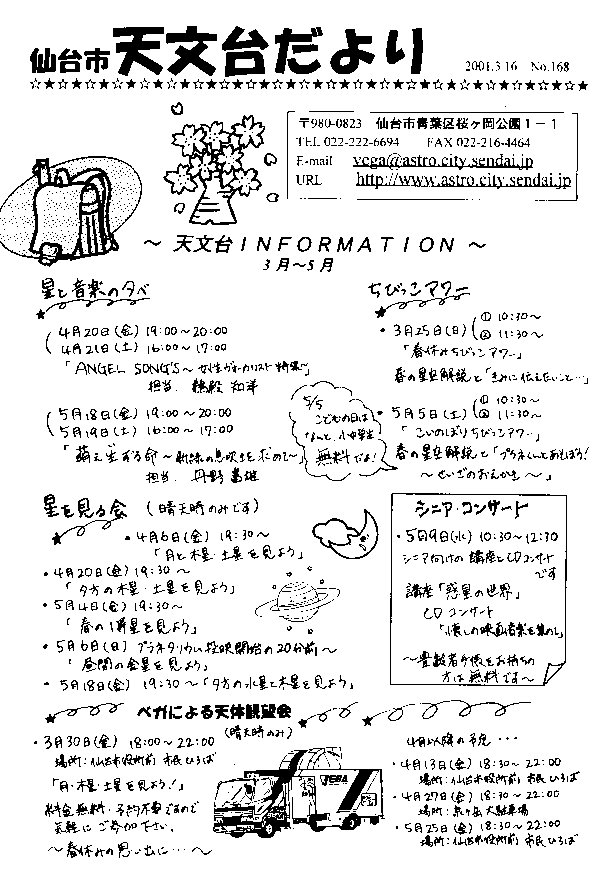 仙台市 天文台だより 2001.3.16 No.168
〒980-0823 仙台市青葉区桜ヶ岡公園1-1
TEL 022-222-6694 FAX 022-216-4464
E-mail vega@astro.city.sendai.jp
URL http://www.astro.city.sendai.jp
～ 天文台INFORMATION ～
3月～5月
星と音楽の夕べ
4月20日(金) 19:00～20:00
4月21日(土) 16:00～17:00
「ANGEL SONG'S～女性ヴォーカリスト特集～」
担当.
5月18日(金) 19:00～20:00
5月19日(土) 16:00～17:00
「萌え出ずる命～新緑の息吹きを求めて～」
担当. 丹野
5/5
こどもの日は
なんと、小中学生
無料だよ!
ちびっこアワー
・3月25日(日) ① 10:30～
② 11:30～
「春休みちびっこアワー」
春の星空解説と「きみに伝えたいこと…」
・5月5日(土) ① 10:30～
② 11:30～
「こいのぼりちびっこアワー」
春の星空解説と「プラネくんとあそぼう!
～せいざのおえかき～」
星を見る会 (晴天時のみです)
・4月6日(金) 19:30～
「月と木星・土星を見よう」
・4月20日(金) 19:30～
「夕方の木星・土星を見よう」
・5月4日(金) 19:30～
「春の1等星を見よう」
・5月6日(日) プラネタリウム投映開始の20分前～
「昼間の金星を見よう」
・5月18日(金) 19:30～「夕方の水星と木星を見よう」
シニア・コンサート
・5月9日(水) 10:30～12:30
シニア向けの講座とCDコンサート
です
講座「惑星の世界」
CDコンサート
「懐しの映画音楽を集めて」
～豊齢者手帳をお持ちの
方は無料です～
ベガによる天体観望会
(晴天時のみ)
・3月30日(金) 18:00～22:00
場所:仙台市役所前 市民ひろば
「月・木星・土星を見よう!」
料金無料・予約不要ですので
気軽にご参加下さい。
～春休みの思い出に…～
VEGA
4月以降の予定・・・
・4月13日(金) 18:30～22:00
場所:仙台市役所前 市民ひろば
・4月27日(金) 18:30～22:00
場所:泉ヶ岳大駐車場
・5月25日(金) 18:30～22:00
場所:仙台市役所前 市民ひろば